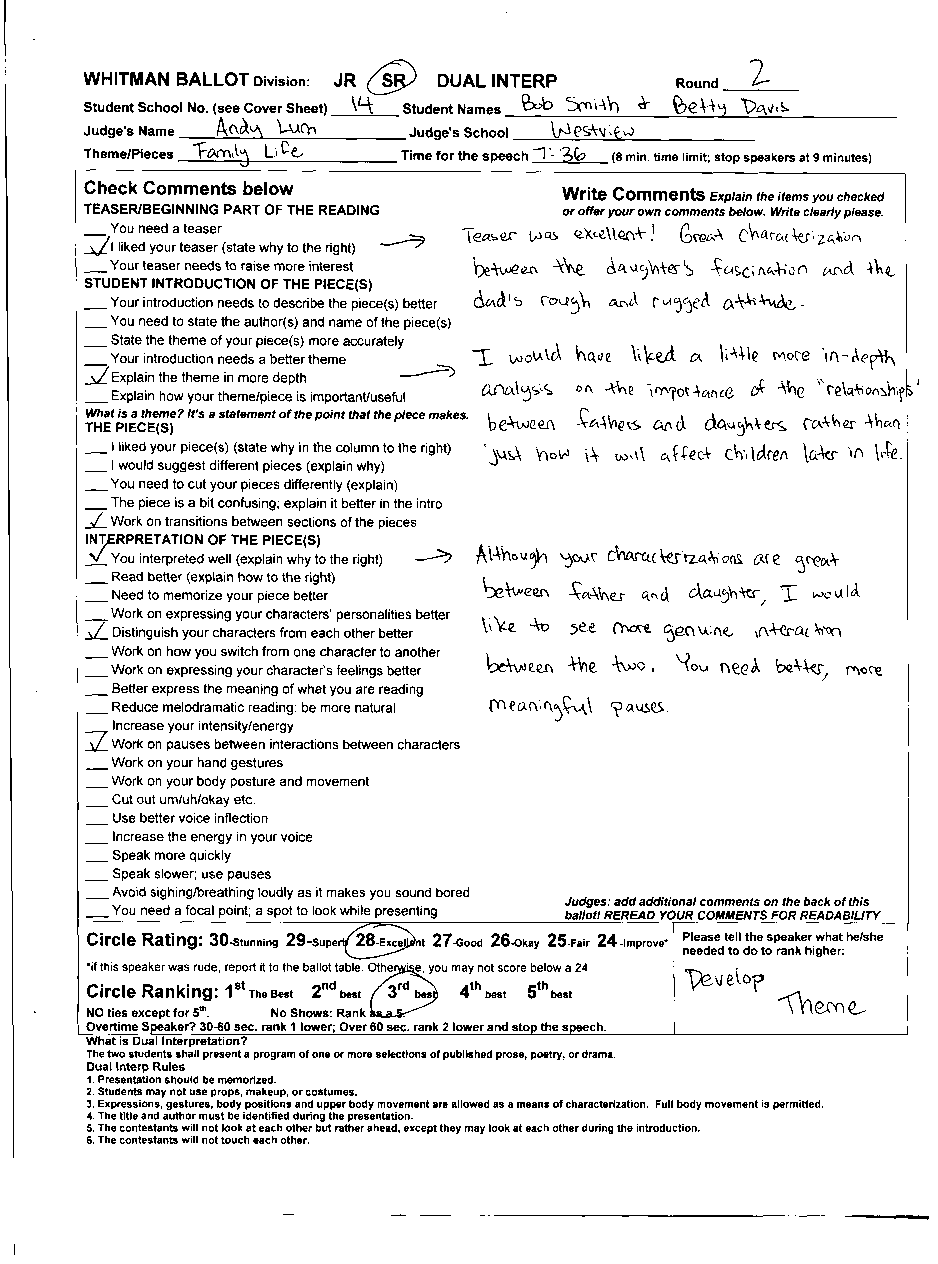 WHITMAN BALLOT Division: JR SR DUAL INTERP Round 2
Student School No. (see Cover Sheet) 14 Student Names Bob Smith + Betty Davis
Judge's Name Andy Lum Judge's School Westview
Theme/Pieces Family Life Time for the speech 7:36 (8 min. time limit; stop speakers at 9 minutes)
Check Comments below
TEASER/BEGINNING PART OF THE READING
You need a teaser
I liked your teaser (state why to the right)
Your teaser needs to raise more interest
STUDENT INTRODUCTION OF THE PIECE(S)
Your introduction needs to describe the piece(s) better
You need to state the author(s) and name of the piece(s)
State the theme of your piece(s) more accurately
Your introduction needs a better theme
Explain the theme in more depth
Explain how your theme/piece is important/useful
What is a theme? It's a statement of the point that the piece makes.
THE PIECE(S)
I liked your piece(s) (state why in the column to the right)
I would suggest different pieces (explain why)
You need to cut your pieces differently (explain)
The piece is a bit confusing; explain it better in the intro
Work on transitions between sections of the pieces
INTERPRETATION OF THE PIECE(S)
You interpreted well (explain why to the right)
Read better (explain how to the right)
Need to memorize your piece better
Work on expressing your characters' personalities better
Distinguish your characters from each other better
Work on how you switch from one character to another
Work on expressing your character's feelings better
Better express the meaning of what you are reading
Reduce melodramatic reading: be more natural
Increase your intensity/energy
Work on pauses between interactions between characters
Work on your hand gestures
Work on your body posture and movement
Cut out um/uh/okay etc.
Use better voice inflection
Increase the energy in your voice
Speak more quickly
Speak slower; use pauses
Avoid sighing/breathing loudly as it makes you sound bored
You need a focal point; a spot to look while presenting
Write Comments Explain the items you checked
or offer your own comments below. Write clearly please.
Teaser was excellent! Great characterization
between the daughter's fascination and the
dad's rough and rugged attitude.
I would have liked a little more in-depth
analysis on the importance of the "relationships"
between fathers and daughters rather than
just how it will affect children later in life.
Although your characterizations are great
between father and daughter, I would
like to see more genuine interaction
between the two. You need better, more
meaningful pauses.
Judges: add additional comments on the back of this
ballot! REREAD YOUR COMMENTS FOR READABILITY
Circle Rating: 30-Stunning 29-Superb 28-Excellent 27-Good 26-Okay 25-Fair 24-Improve*
*if this speaker was rude, report it to the ballot table. Otherwise, you may not score below a 24
Circle Ranking: 1st The Best 2nd best 3rd best 4th best 5th best
NO ties except for 5th. No Shows: Rank as a 5.
Overtime Speaker? 30-60 sec. rank 1 lower; Over 60 sec. rank 2 lower and stop the speech.
Please tell the speaker what he/she
needed to do to rank higher:
Develop
Theme
What is Dual Interpretation?
The two students shall present a program of one or more selections of published prose, poetry, or drama.
Dual Interp Rules
1. Presentation should be memorized.
2. Students may not use props, makeup, or costumes.
3. Expressions, gestures, body positions and upper body movement are allowed as a means of characterization. Full body movement is permitted.
4. The title and author must be identified during the presentation.
5. The contestants will not look at each other but rather ahead, except they may look at each other during the introduction.
6. The contestants will not touch each other.